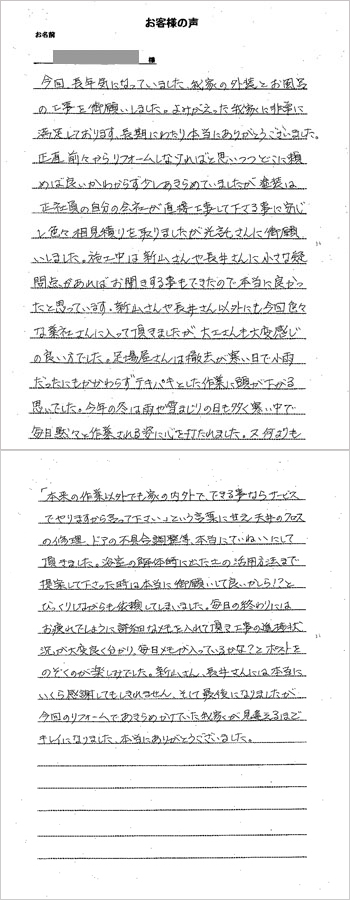 お客様の声
お名前
様
今回、長年気になっていました、我家の外装とお風呂
の工事を御願いしました。よみがえった我家に非常に
満足しております、長期にわたり本当にありがとうございました。
正直、前々からリフォームしなければと思いつつどこに頼
めば良いかわからず少しあきらめていましたが塗装は
正社員の自分の会社が直接工事して下さる事に安心
し色々相見積りを取りましたが光託さんに御願
いしました。施工中は新山さんや長井さんに小さな疑
問点があればお聞きする事もできたので本当に良かっ
たと思っています。新山さんや長井さん以外にも今回色々
な業社さんに入って頂きましたが、大工さんも大変感じ
の良い方でした。足場屋さんは撤去が寒い日で小雨
だったにもかかわらずテキパキとした作業に頭が下がる
思いでした。今年の冬は雨や雪まじりの日も多く寒い中で
毎日黙々と作業される姿に心を打たれました。又何よりも
「本来の作業以外でも家の内外で、できる事ならサービス
でやりますから言って下さい」という言葉に甘え天井のクロス
の修理、ドアの不具合調整等、本当にていねいにして
頂きました。浴室の解体時に出た土の活用方法まで
提案して下さった時は本当に御願いして良いかしら!?と
びっくりしながらも依頼してしまいました。毎日の終わりには
お疲れでしょうに詳細なメモを入れて頂き工事の進捗状
況が大変良く分かり、毎日メモが入っているかな?とポストを
のぞくのが楽しみでした。新山さん、長井さんには本当に
いくら感謝してもしきれません、そして最後になりましたが
今回のリフォームであきらめかけていた我家が見違えるほど
キレイになりました、本当にありがとうございました。